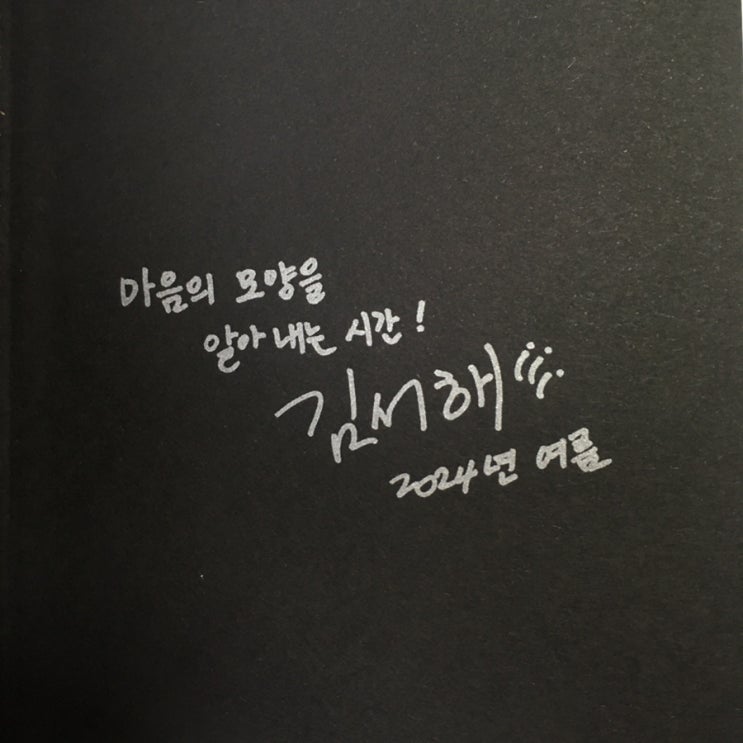 마음의 모양을
알아내는 시간!
김서해
2024년 여름